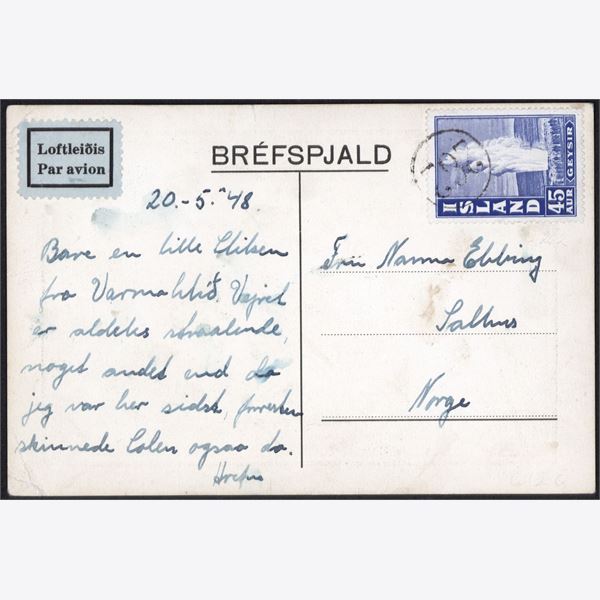 Loftleiðis
Par avion
BRÉFSPJALD
ÍSLAND
45
AUR
GEYSIR
20.-5.-'48.
Bare en lille Hilsen
fra Varmahlíð. Vejret
er aldeles straalende,
noget andet end da
jeg var her sidst, forresten
skinnede Solen ogsaa da.
Frú Nanna Ebbing
Salhus
Norge